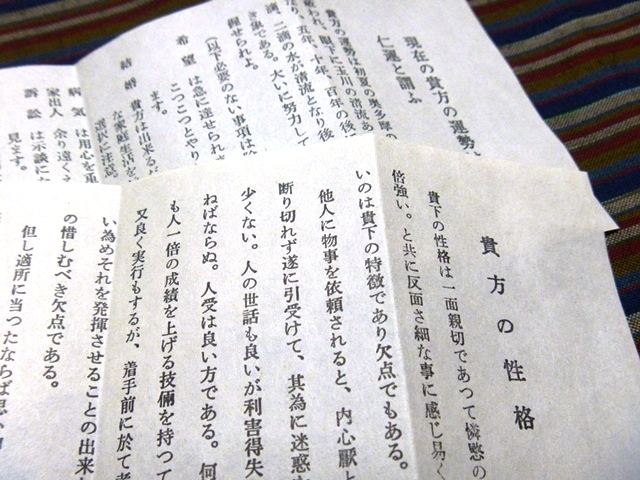 現在の貴方の運勢
仁運と謂ふ
貴方の運勢は初夏の奥多摩の
われ、眼下に玉川の清流あ
なり、五年、十年、百年の後に
滴、二滴の水が清流となり後
き象である。大いに努力して
握せられよ。
(以下必要のない事項は
希望 は急に達せられ
こつこつとやり
ます。
結婚 貴方は出来るだ
な家庭生活を
選択に注意
病気 は用心を重
家出人 余り遠くえ
訴訟 は示談に
見ます。
貴方の性格
貴下の性格は一面親切であつて憐愍の
倍強い。と共に反面さ細な事に感じ易く
いのは貴下の特徴であり欠点でもある。
他人に物事を依頼されると、内心厭と
断り切れず遂に引受けて、其為に迷惑
少くない。人の世話も良いが利害得失
ねばならぬ。人受は良い方である。何
も人一倍の成績を上げる技倆を持つて
又良く実行もするが、着手前に於て考
い為めそれを発揮させることの出来
の惜しむべき欠点である。
但し適所に当つたならば思い切